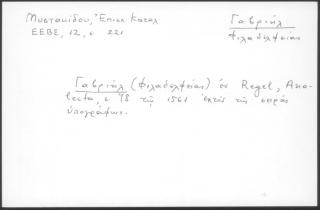 Μυστακίδου, Ἐπισκ Καταλ
ΕΕΒΣ, 12, σ 221
Γαβριήλ
Φιλαδελφείας
Γαβριήλ (Φιλαδελφείας) ἐν Regel, Ana-
lecta, σ 98 τῆς 1561 ἐκτὸς τῆς σειρᾶς
ὑπογράφων.